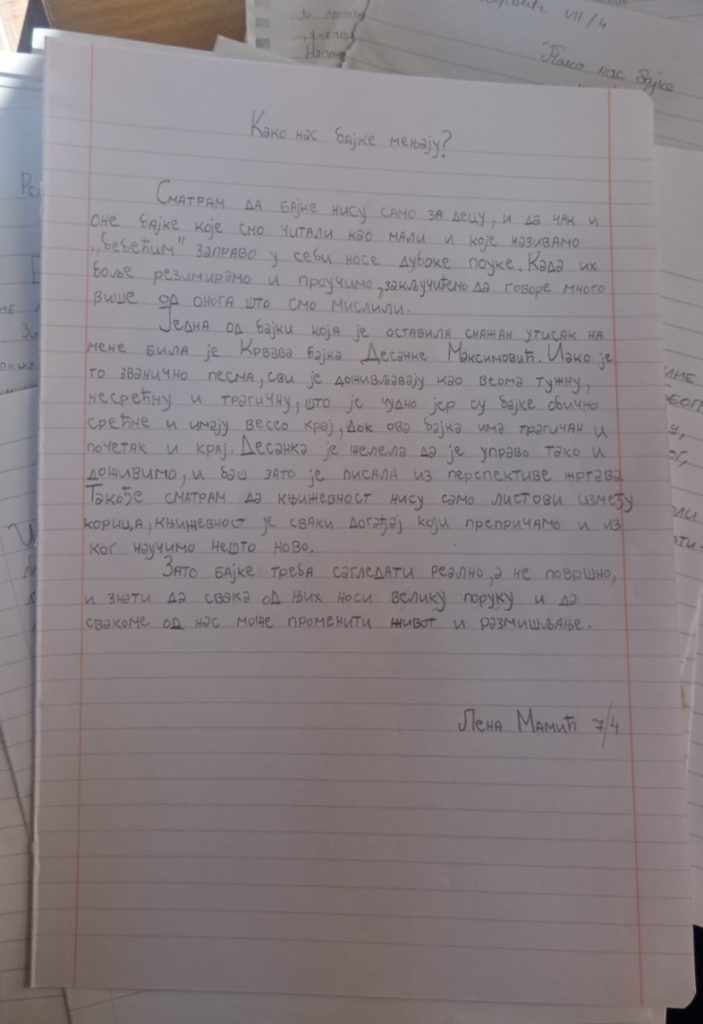 apolite VII/4
Како нас бајке
Како нас бајке мењају?
Сматрам да бајке нису само за децу, и да чак и
оне бајке које смо читали као мали и које називамо
„бебећим" заправо у себи носе дубоке поуке. Када их
боље резимирамо и проучимо, закључићемо да говоре много
више од онога што смо мислили.
Једна од бајки која је оставила снажан утисак на
мене била је Крвава бајка Десанке Максимовић. Иако је
то званично песма, сви је доживљавају као веома тужну,
несрећну и трагичну, што је чудно јер су бајке обично
срећне и имају весео крај, док ова бајка има трагичан и
почетак и крај. Десанка је желела да је управо тако и
доживимо, и баш зато је писала из перспективе жртава
Такође сматрам да књижевност нису само листови између
корица, књижевност је сваки догађај који препричамо и из
ког научимо нешто ново.
Зато бајке треба сагледати реално, а не површно,
и знати да свака од њих носи велику поруку и да
свакоме од нас може променити живот и размишљање.
Лена Мамић 7/4